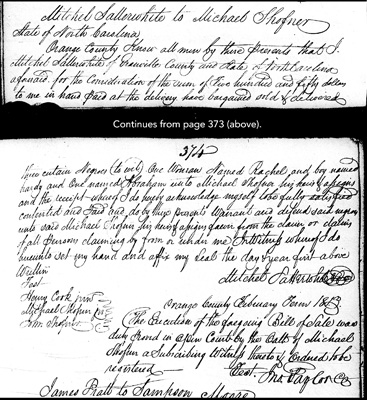 Mitchel Satterwhite to Michael Shofner
State of North Carolina
Orange County Know all men by these presents that I
Mitchel Satterwhite of Granville County and State of North Carolina
aforesaid for the Consideration of the sum of Five hundred and fifty dollars
to me in hand paid at the delivery have bargained sold & delivered
Continues from page 373 (above).
374
three certain Negroes (to wit) One Woman Named Rachel and boy named
hardy and One named Abraham unto Michael Shofner his heirs & assigns
and the receipt whereof I do hereby acknowledge myself to be fully satisfied
contented and paid and do by these presents Warrant and defend said negroes
unto said Michael Shofner his heirs & assigns forever from the claim or claims
of all persons claiming by from or under me In Witness whereof I do
hereunto set my hand and affix my seal the day & year first above
Written
Mitchel Satterwhite Seal
Test
Henry Cook
Michael Shofner
John Shofner
Orange County February Term 1813
The Execution of the foregoing Bill of Sale was
duly proved in Open Court by the Oath of Michael
Shofner a Subscribing Witness thereto & Ordered to be
registered
Test Jno Taylor CC
James Pratt to Sampson Moore